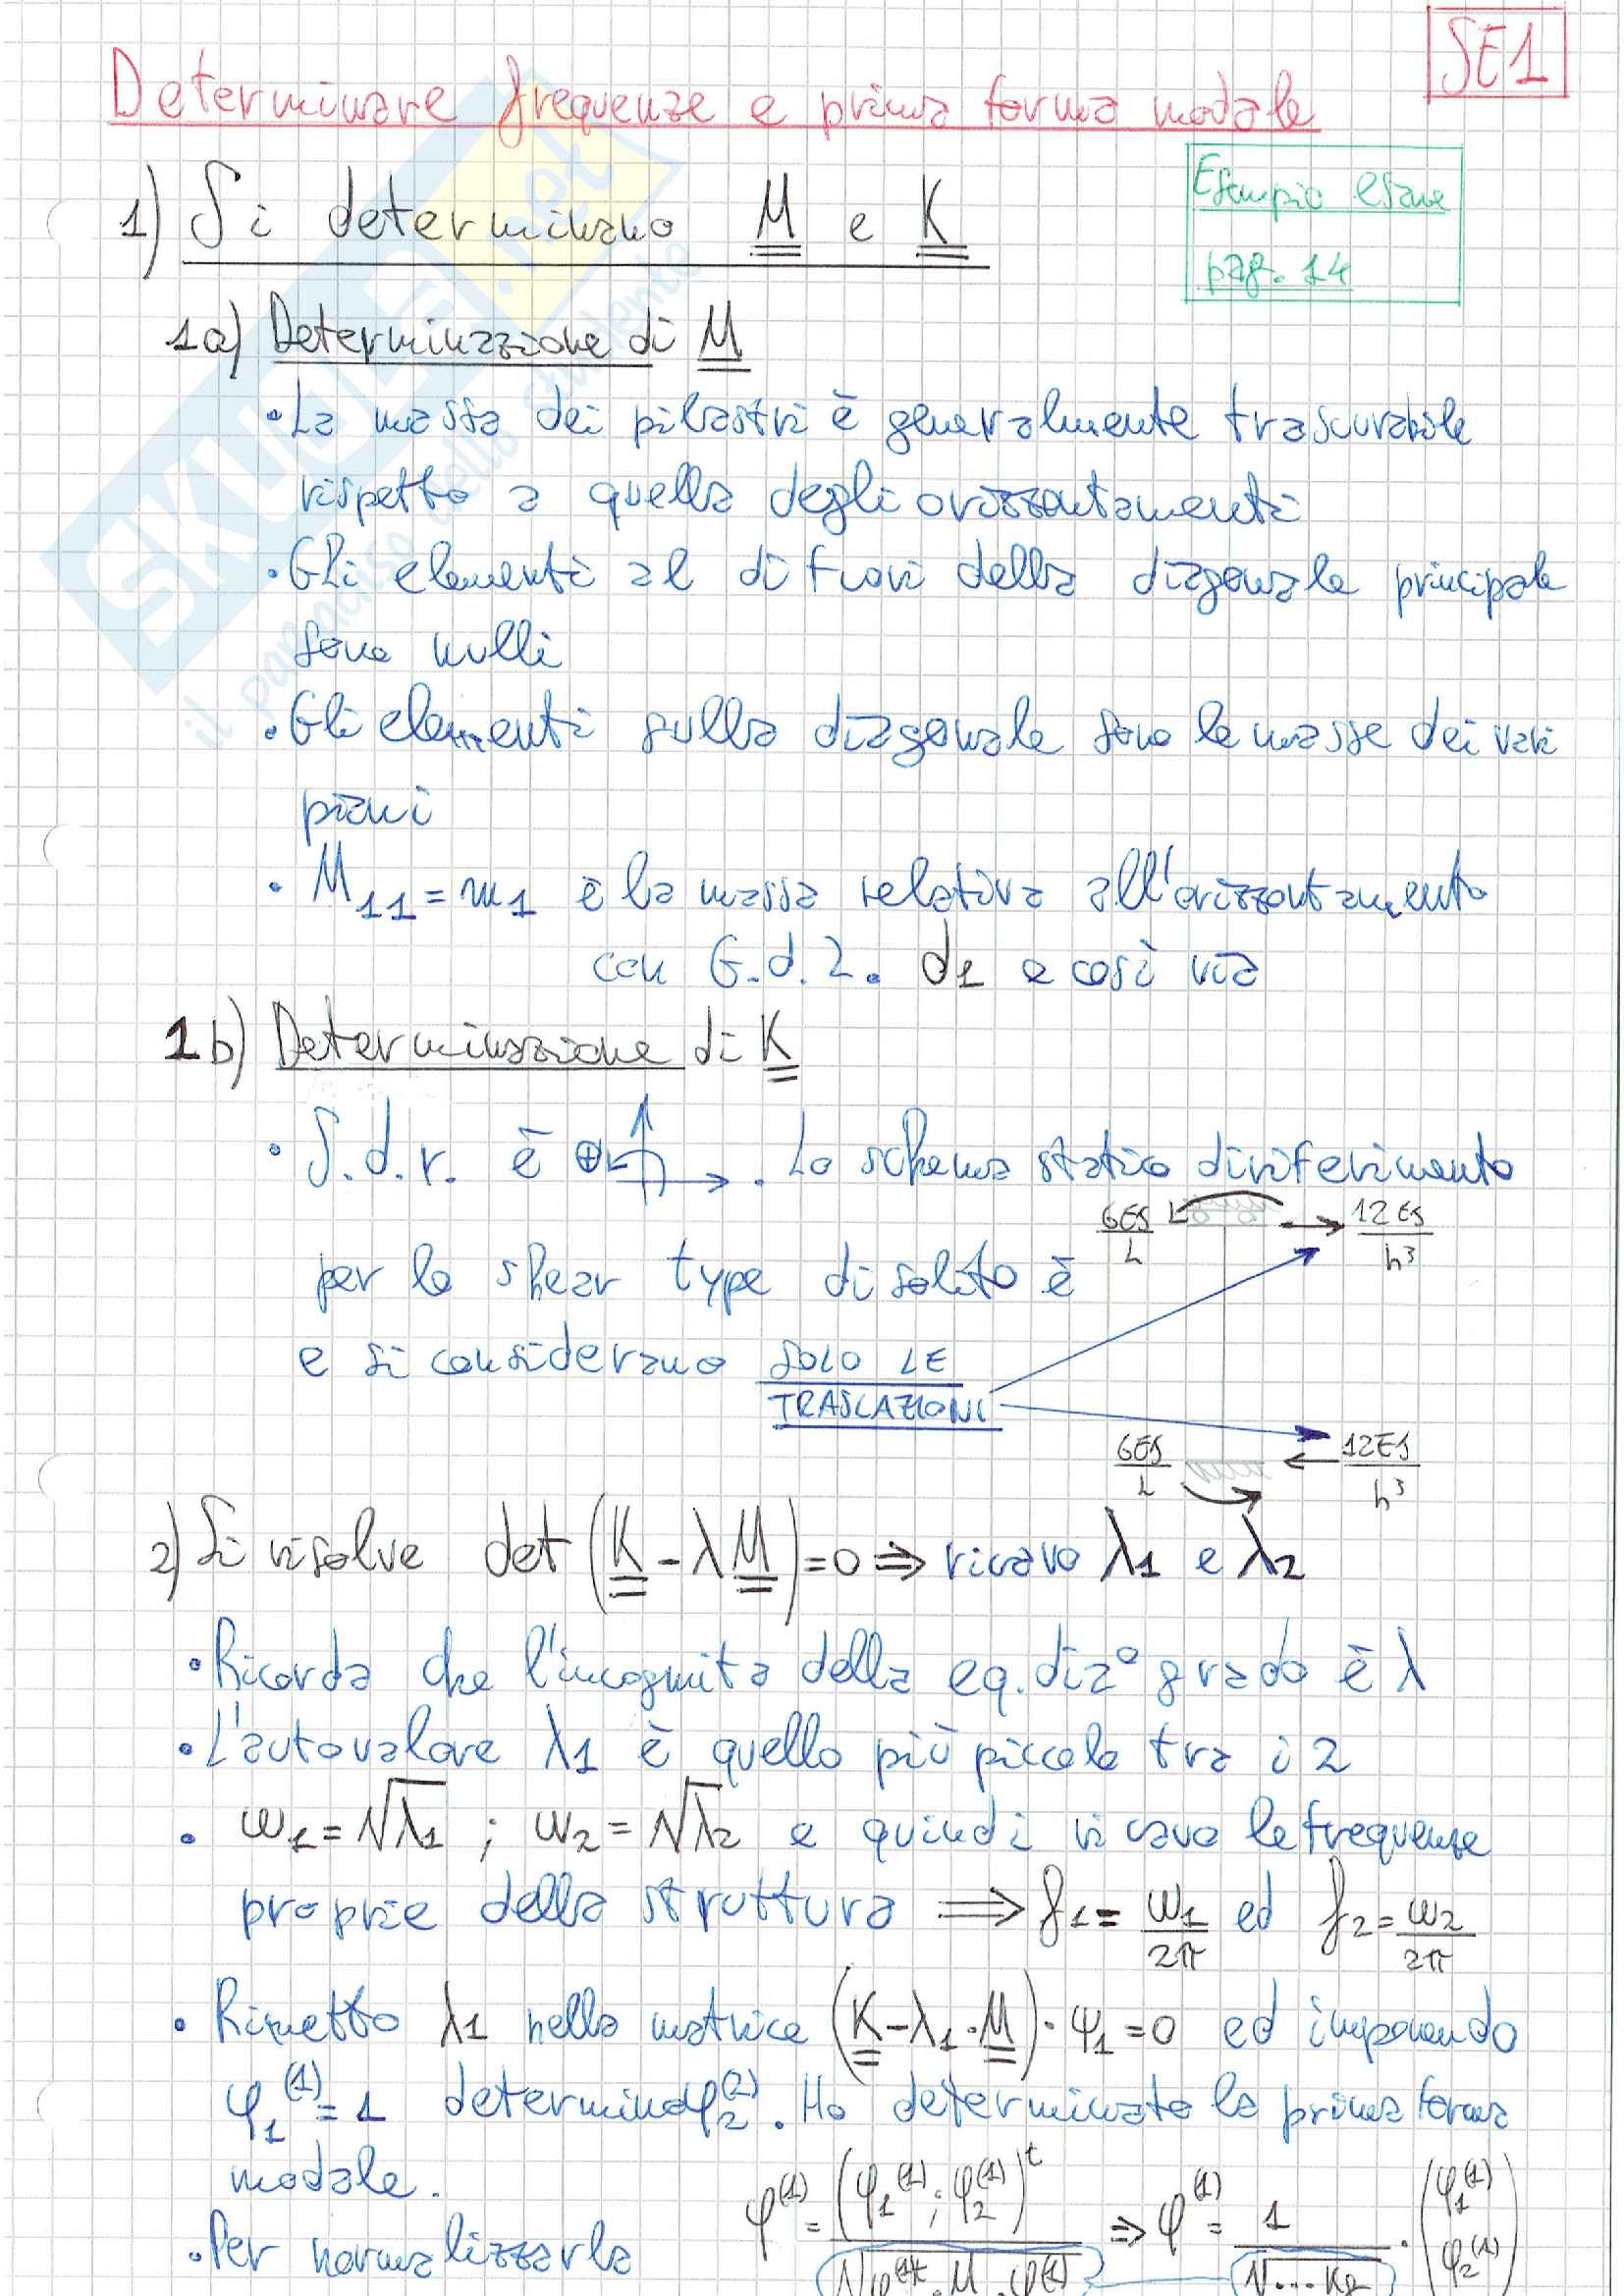 SE1
Determinare frequenze e prima forma modale
Esempio esame
pag. 14
1) Si determinano M e K
1a) Determinazione di M
• La massa dei pilastri è generalmente trascurabile
rispetto a quella degli orizzontamenti
• Gli elementi al di fuori della diagonale principale
sono nulli
• Gli elementi sulla diagonale sono le masse dei vari
piani
• M11 = m1 è la massa relativa all'orizzontamento
con G.d.L. d1 e così via
1b) Determinazione di K
• S.d.r. è ⊕ . Lo schema statico di riferimento
6ES/L 12ES/h³
per lo shear type di solito è
e si considerano SOLO LE
TRASLAZIONI
6ES/L 12ES/h³
2) Si risolve det (K - λM) = 0 ⇒ ricavo λ1 e λ2
• Ricorda che l'incognita della eq. di 2° grado è λ
• L'autovalore λ1 è quello più piccolo tra i 2
• ω1 = √λ1 ; ω2 = √λ2 e quindi ricavo le frequenze
proprie della struttura ⇒ f1 = ω1/2π ed f2 = ω2/2π
• Rimetto λ1 nella matrice (K - λ1 · M) · φ1 = 0 ed imponendo
φ1⁽¹⁾ = 1 determino φ2⁽²⁾. Ho determinato la prima forma
modale.
• Per normalizzarla φ⁽¹⁾ = (φ1⁽¹⁾; φ2⁽¹⁾)ᵗ / √φ⁽¹⁾ᵗ · M · φ⁽¹⁾ ⇒ φ⁽¹⁾ = 1/√... kg · (φ1⁽¹⁾ φ2⁽¹⁾)
SKUOLA.net
il paradiso dello studente